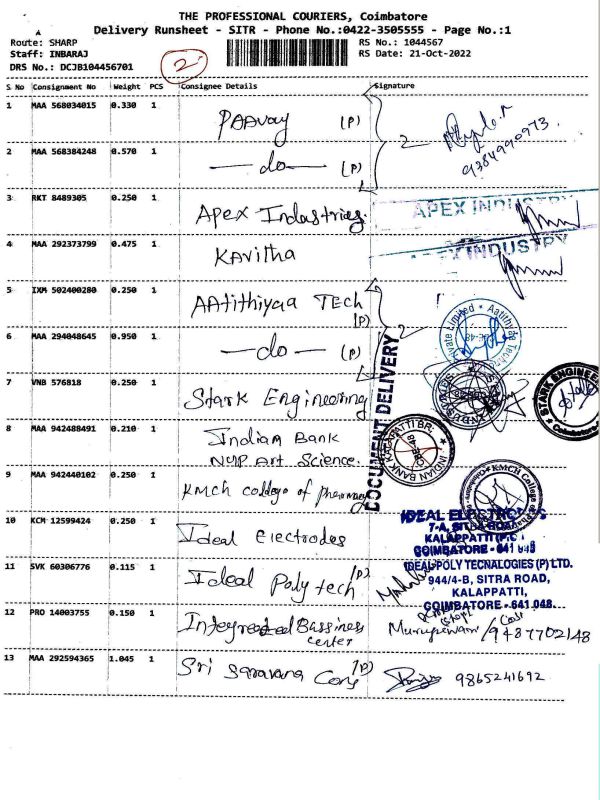 THE PROFESSIONAL COURIERS, Coimbatore
Delivery Runsheet - SITR - Phone No.:0422-3505555 - Page No.:1
Route: SHARP
Staff: INBARAJ
DRS No.: DCJB104456701
2
RS No.: 1044567
RS Date: 21-Oct-2022
S No Consignment No Weight PCS Consignee Details Signature
1 MAA 568034015 0.330 1 PAAvay (P)
2 9384990973
2 MAA 568384248 0.570 1 —do— (P)
3 RKT 8489305 0.250 1 Apex Industries.
APEX INDUSTRY
4 MAA 292373799 0.475 1 Kavitha
APEX INDUSTRY
5 IXM 502400280 0.250 1 AAtithiyaa Tech (P)
2
Private Limited • Aatithyaa Technologies
6 MAA 294048645 0.950 1 —do— (P)
7 VNB 576818 0.250 1 Stark Engineering
STARK ENGINEERING
DOCUMENT DELIVERY
8 MAA 942488491 0.210 1 Indian Bank
NGP Art Science.
INDIAN BANK KALAPATTI BR.
CBE-48
9 MAA 942440102 0.250 1 KMCH college of pharmacy
KMCH College
10 KCM 12599424 0.250 1 Ideal Electrodes
IDEAL ELECTRODES
7-A, SITRA ROAD
KALAPPATTI (P.O)
COIMBATORE - 641 048
11 SVK 60306776 0.115 1 Ideal Poly tech (P)
IDEAL POLY TECNALOGIES (P) LTD.
944/4-B, SITRA ROAD,
KALAPPATTI,
COIMBATORE - 641 048.
12 PRO 14003755 0.150 1 Integrated Bassiness
center
9487702148
13 MAA 292594365 1.045 1 Sri Saravana Cons (P)
9865241692